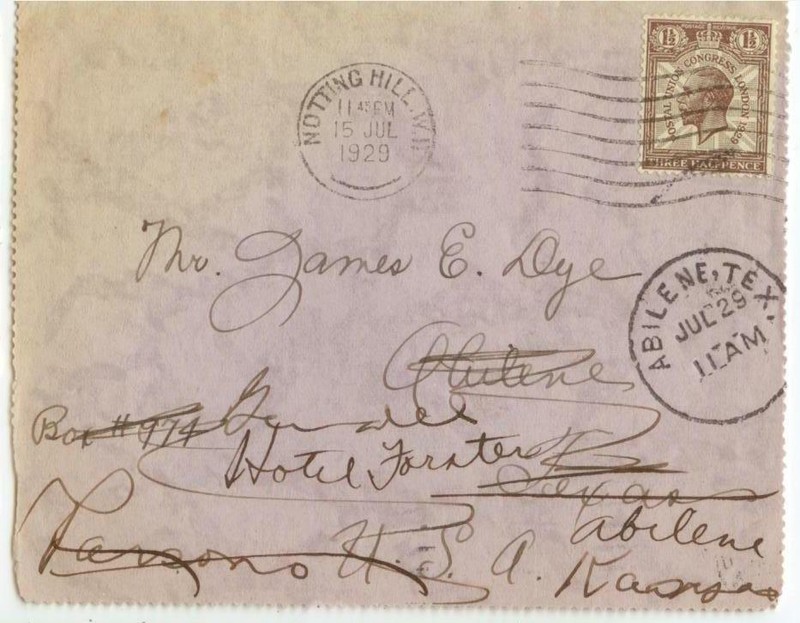 NOTTING HILL. W.11
11 45 PM
15 JUL
1929
1½ 1½
POSTAL UNION CONGRESS LONDON 1929
THREE HALFPENCE
ABILENE, TEX.
JUL 29
11 AM
Mr. James E. Dye
Abilene
Box # 974
Hotel Forster
Texas
Abilene
Parsons U. S. A. Kansas